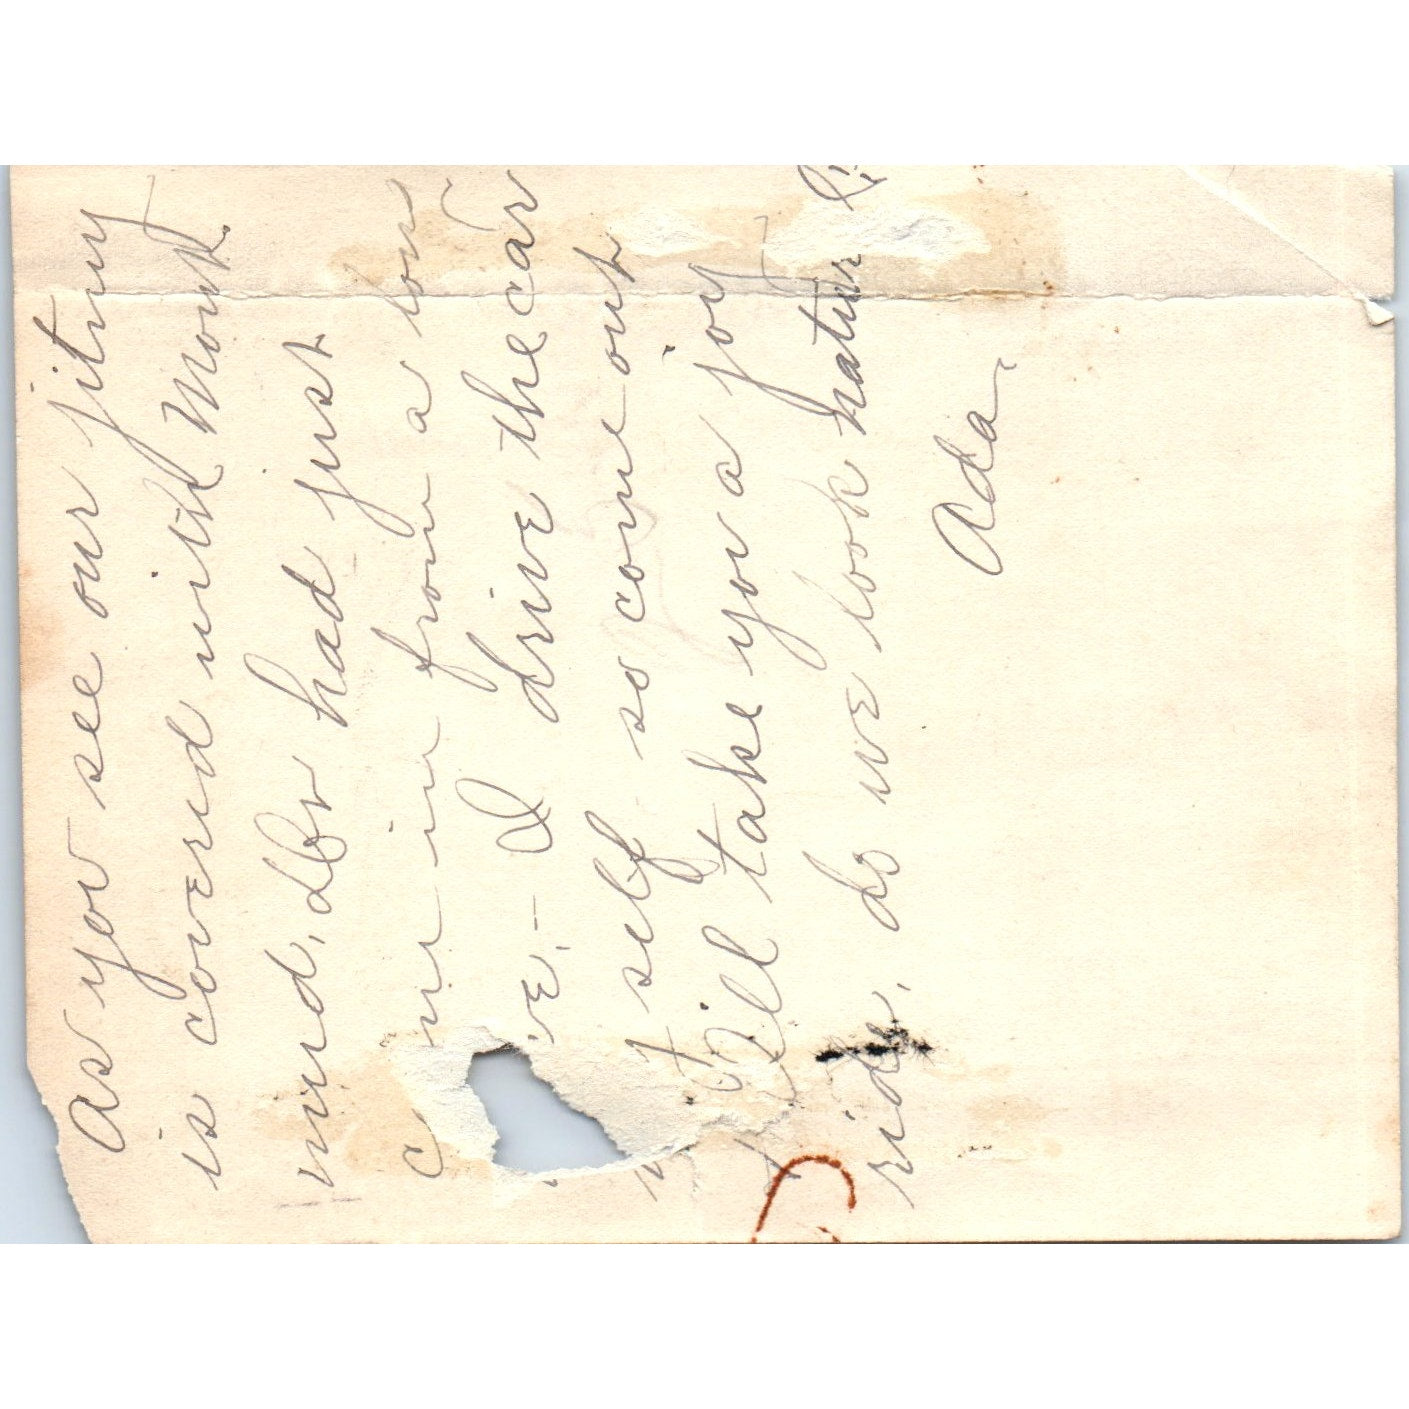 As you see our jitny
is covered with Mont
mud. We had just
in from a long
I drive the car
self so come out
I'll take you a joy
ride. Do we look natur
Ada